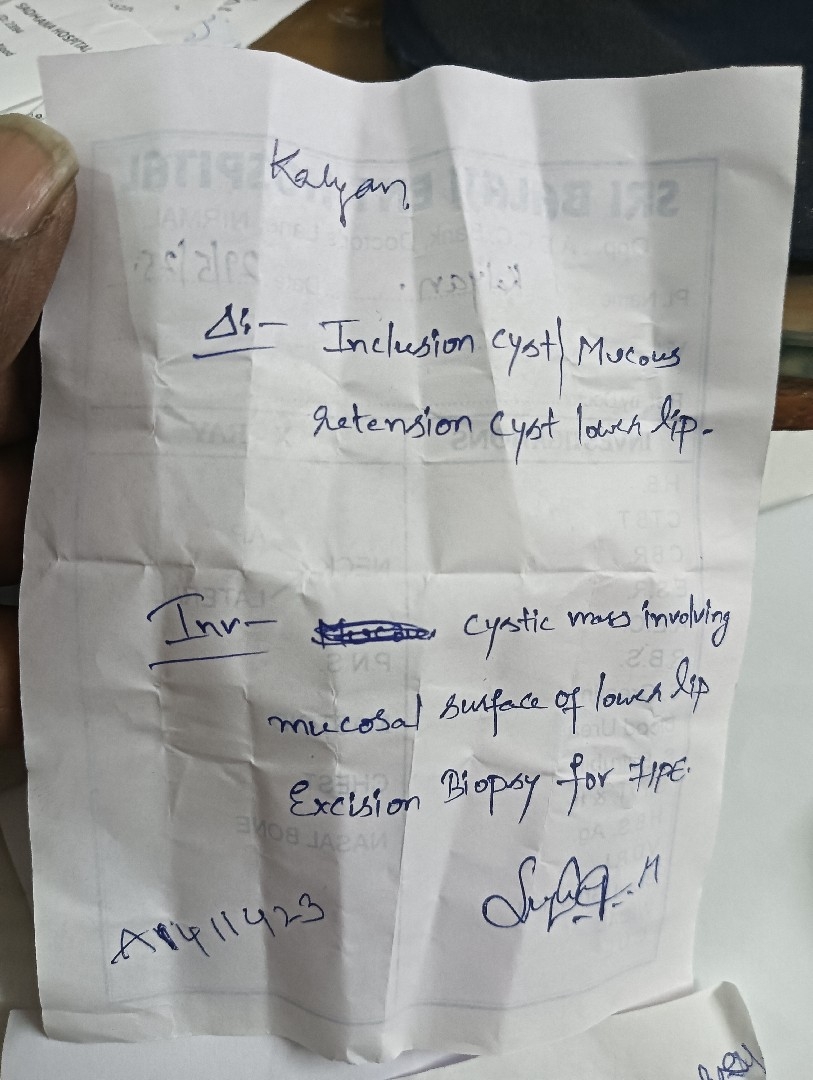 SADHANA HOSPITAL
Kalyan
Δ:- Inclusion cyst/ Mucous
retension cyst lower lip.
Inv- cystic mass involving
mucosal surface of lower lip
Excision Biopsy for HPE.
A1411423